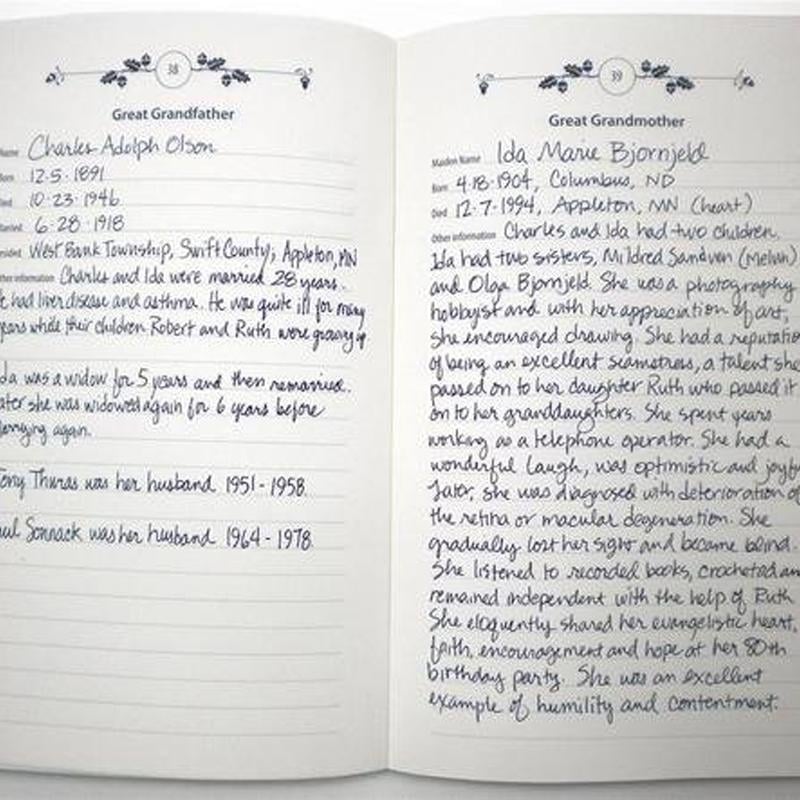 38
Great Grandfather
Name Charles Adolph Olson
Born 12·5·1891
Died 10·23·1946
Married 6·28·1918
Resided West Bank Township, Swift County; Appleton, MN
Other information Charles and Ida were married 28 years.
He had liver disease and asthma. He was quite ill for many
years while their children Robert and Ruth were growing up
Ida was a widow for 5 years and then remarried.
Later she was widowed again for 6 years before
marrying again.
Tony Thuras was her husband 1951-1958.
Paul Sonnack was her husband 1964-1978.
39
Great Grandmother
Maiden Name Ida Marie Bjornjeld
Born 4·18·1904, Columbus, ND
Died 12·7·1994, Appleton, MN (heart)
Other information Charles and Ida had two children.
Ida had two sisters, Mildred Sandven (Melvin)
and Olga Bjornjeld. She was a photography
hobbyist and with her appreciation of art,
she encouraged drawing. She had a reputation
of being an excellent seamstress, a talent she
passed on to her daughter Ruth who passed it
on to her granddaughters. She spent years
working as a telephone operator. She had a
wonderful laugh, was optimistic and joyful
Later, she was diagnosed with deterioration of
the retina or macular degeneration. She
gradually lost her sight and became blind.
She listened to recorded books, crocheted and
remained independent with the help of Ruth
She eloquently shared her evangelistic heart,
faith, encouragement and hope at her 80th
birthday party. She was an excellent
example of humility and contentment.